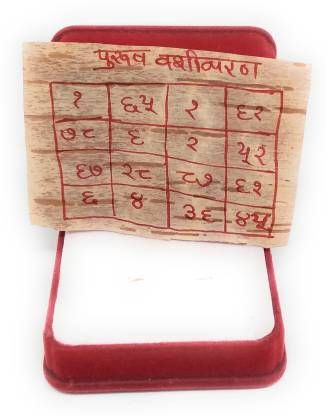 पुरूष वशीकरण
१ ६५ २ ६२
७८ ६ २ ५२
६७ २८ ८७ ६१
६ ४ ३६ ४५